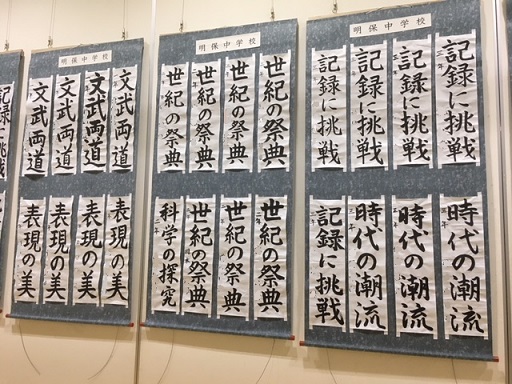 明保中学校
記録に挑戦
記録に挑戦
記録に挑戦
記録に挑戦
時代の潮流
時代の潮流
時代の潮流
記録に挑戦
明保中学校
世紀の祭典
世紀の祭典
世紀の祭典
世紀の祭典
世紀の祭典
世紀の祭典
世紀の祭典
科学の探究
明保中学校
文武両道
文武両道
文武両道
文武両道
表現の美
表現の美
表現の美
表現の美
記録に挑戦